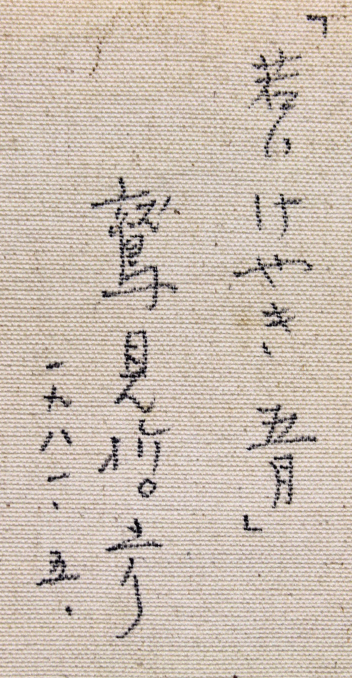 「若いけやき、五月」
鷲見哲彦
一九八一、五、